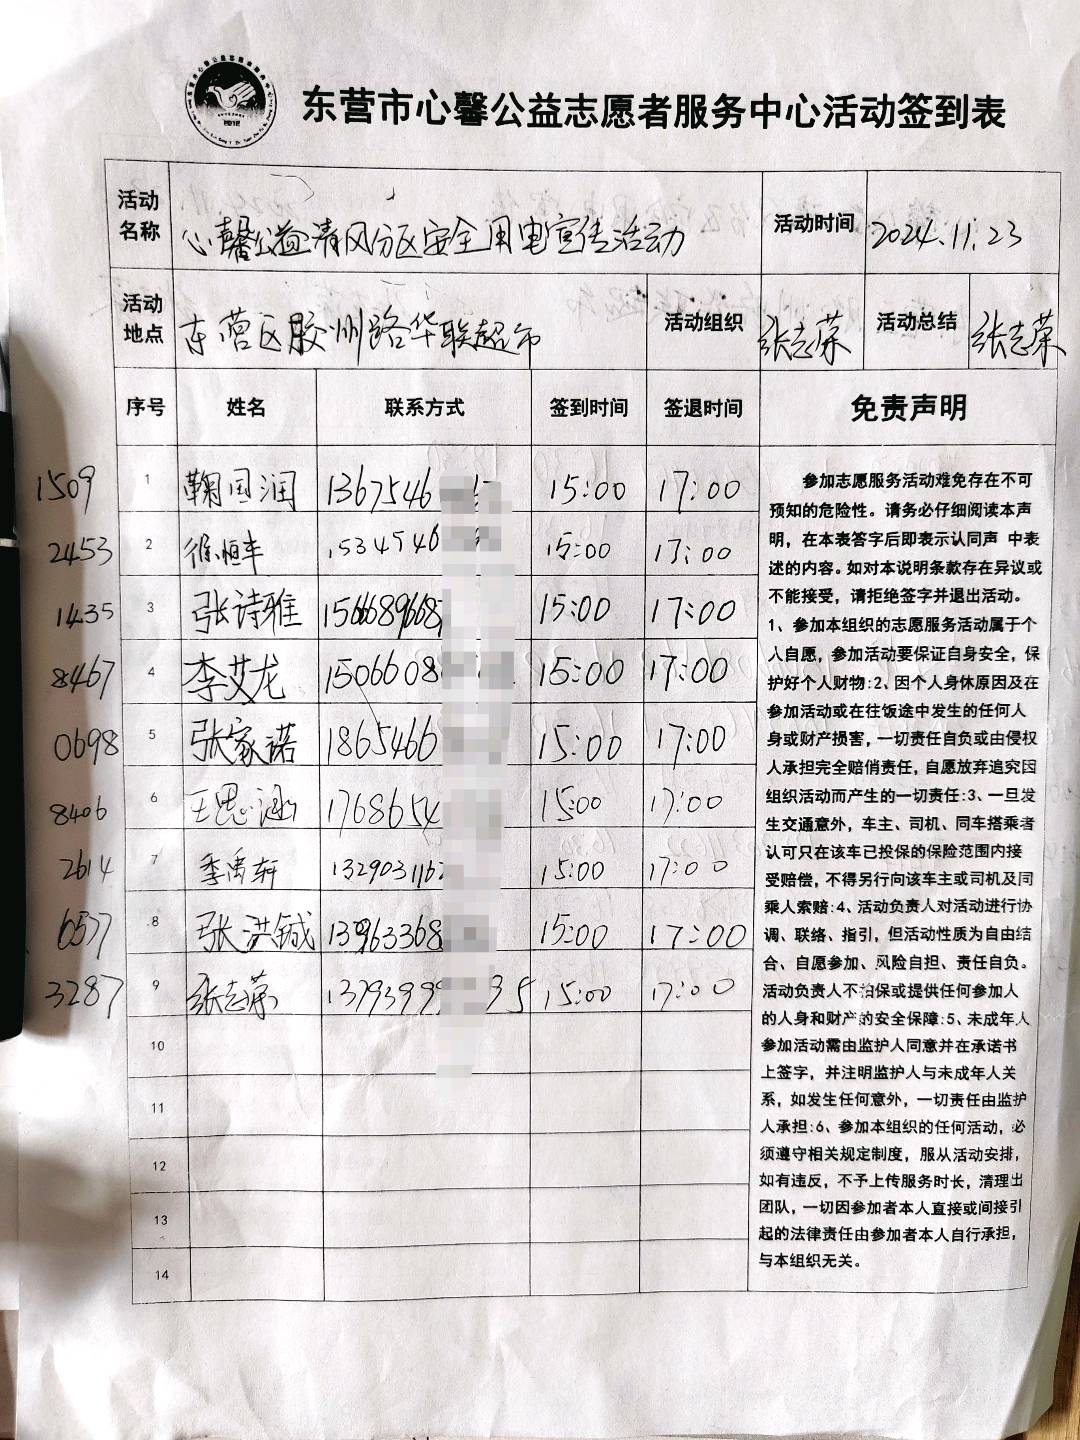 东营市心馨公益志愿者服务中心活动签到表
活动名称 心馨公益清风分区安全用电宣传活动 活动时间 2024.11.23
活动地点 东营区胶州路华联超市 活动组织 张志荣 活动总结 张志荣
序号 姓名 联系方式 签到时间 签退时间 免责声明
1509 1 鞠国润 1367546 15:00 17:00
2453 2 徐恒丰 1534546 15:00 17:00
1435 3 张诗雅 1566689668 15:00 17:00
8467 4 李艾龙 1506608 15:00 17:00
0698 5 张家诺 1865466 15:00 17:00
8406 6 王思涵 1768654 15:00 17:00
2614 7 季禹轩 132903116 15:00 17:00
6577 8 张洪铖 13963368 15:00 17:00
3287 9 张志荣 13793999 35 15:00 17:00
10
11
12
13
14
参加志愿服务活动难免存在不可
预知的危险性。请务必仔细阅读本声
明，在本表答字后即表示认同声 中表
述的内容。如对本说明条款存在异议或
不能接受，请拒绝签字并退出活动。
1、参加本组织的志愿服务活动属于个
人自愿，参加活动要保证自身安全，保
护好个人财物:2、因个人身休原因及在
参加活动或在往饭途中发生的任何人
身或财产损害，一切责任自负或由侵权
人承担完全赔俏责任，自愿放弃追究因
组织活动而产生的一切责任:3、一旦发
生交通意外，车主、司机、同车搭乘者
认可只在该车已投保的保险范围内接
受赔偿，不得另行向该车主或司机及同
乘人索赔:4、活动负责人对活动进行协
调、联络、指引，但活动性质为自由结
合、自愿参加、风险自担、责任自负。
活动负责人不担保或提供任何参加人
的人身和财产的安全保障:5、未成年人
参加活动需由监护人同意并在承诺书
上签字，并注明监护人与未成年人关
系，如发生任何意外，一切责任由监护
人承担:6、参加本组织的任何活动，必
须遵守相关规定制度，服从活动安排，
如有违反，不予上传服务时长，清理出
团队，一切因参加者本人直接或间接引
起的法律责任由参加者本人自行承担，
与本组织无关。